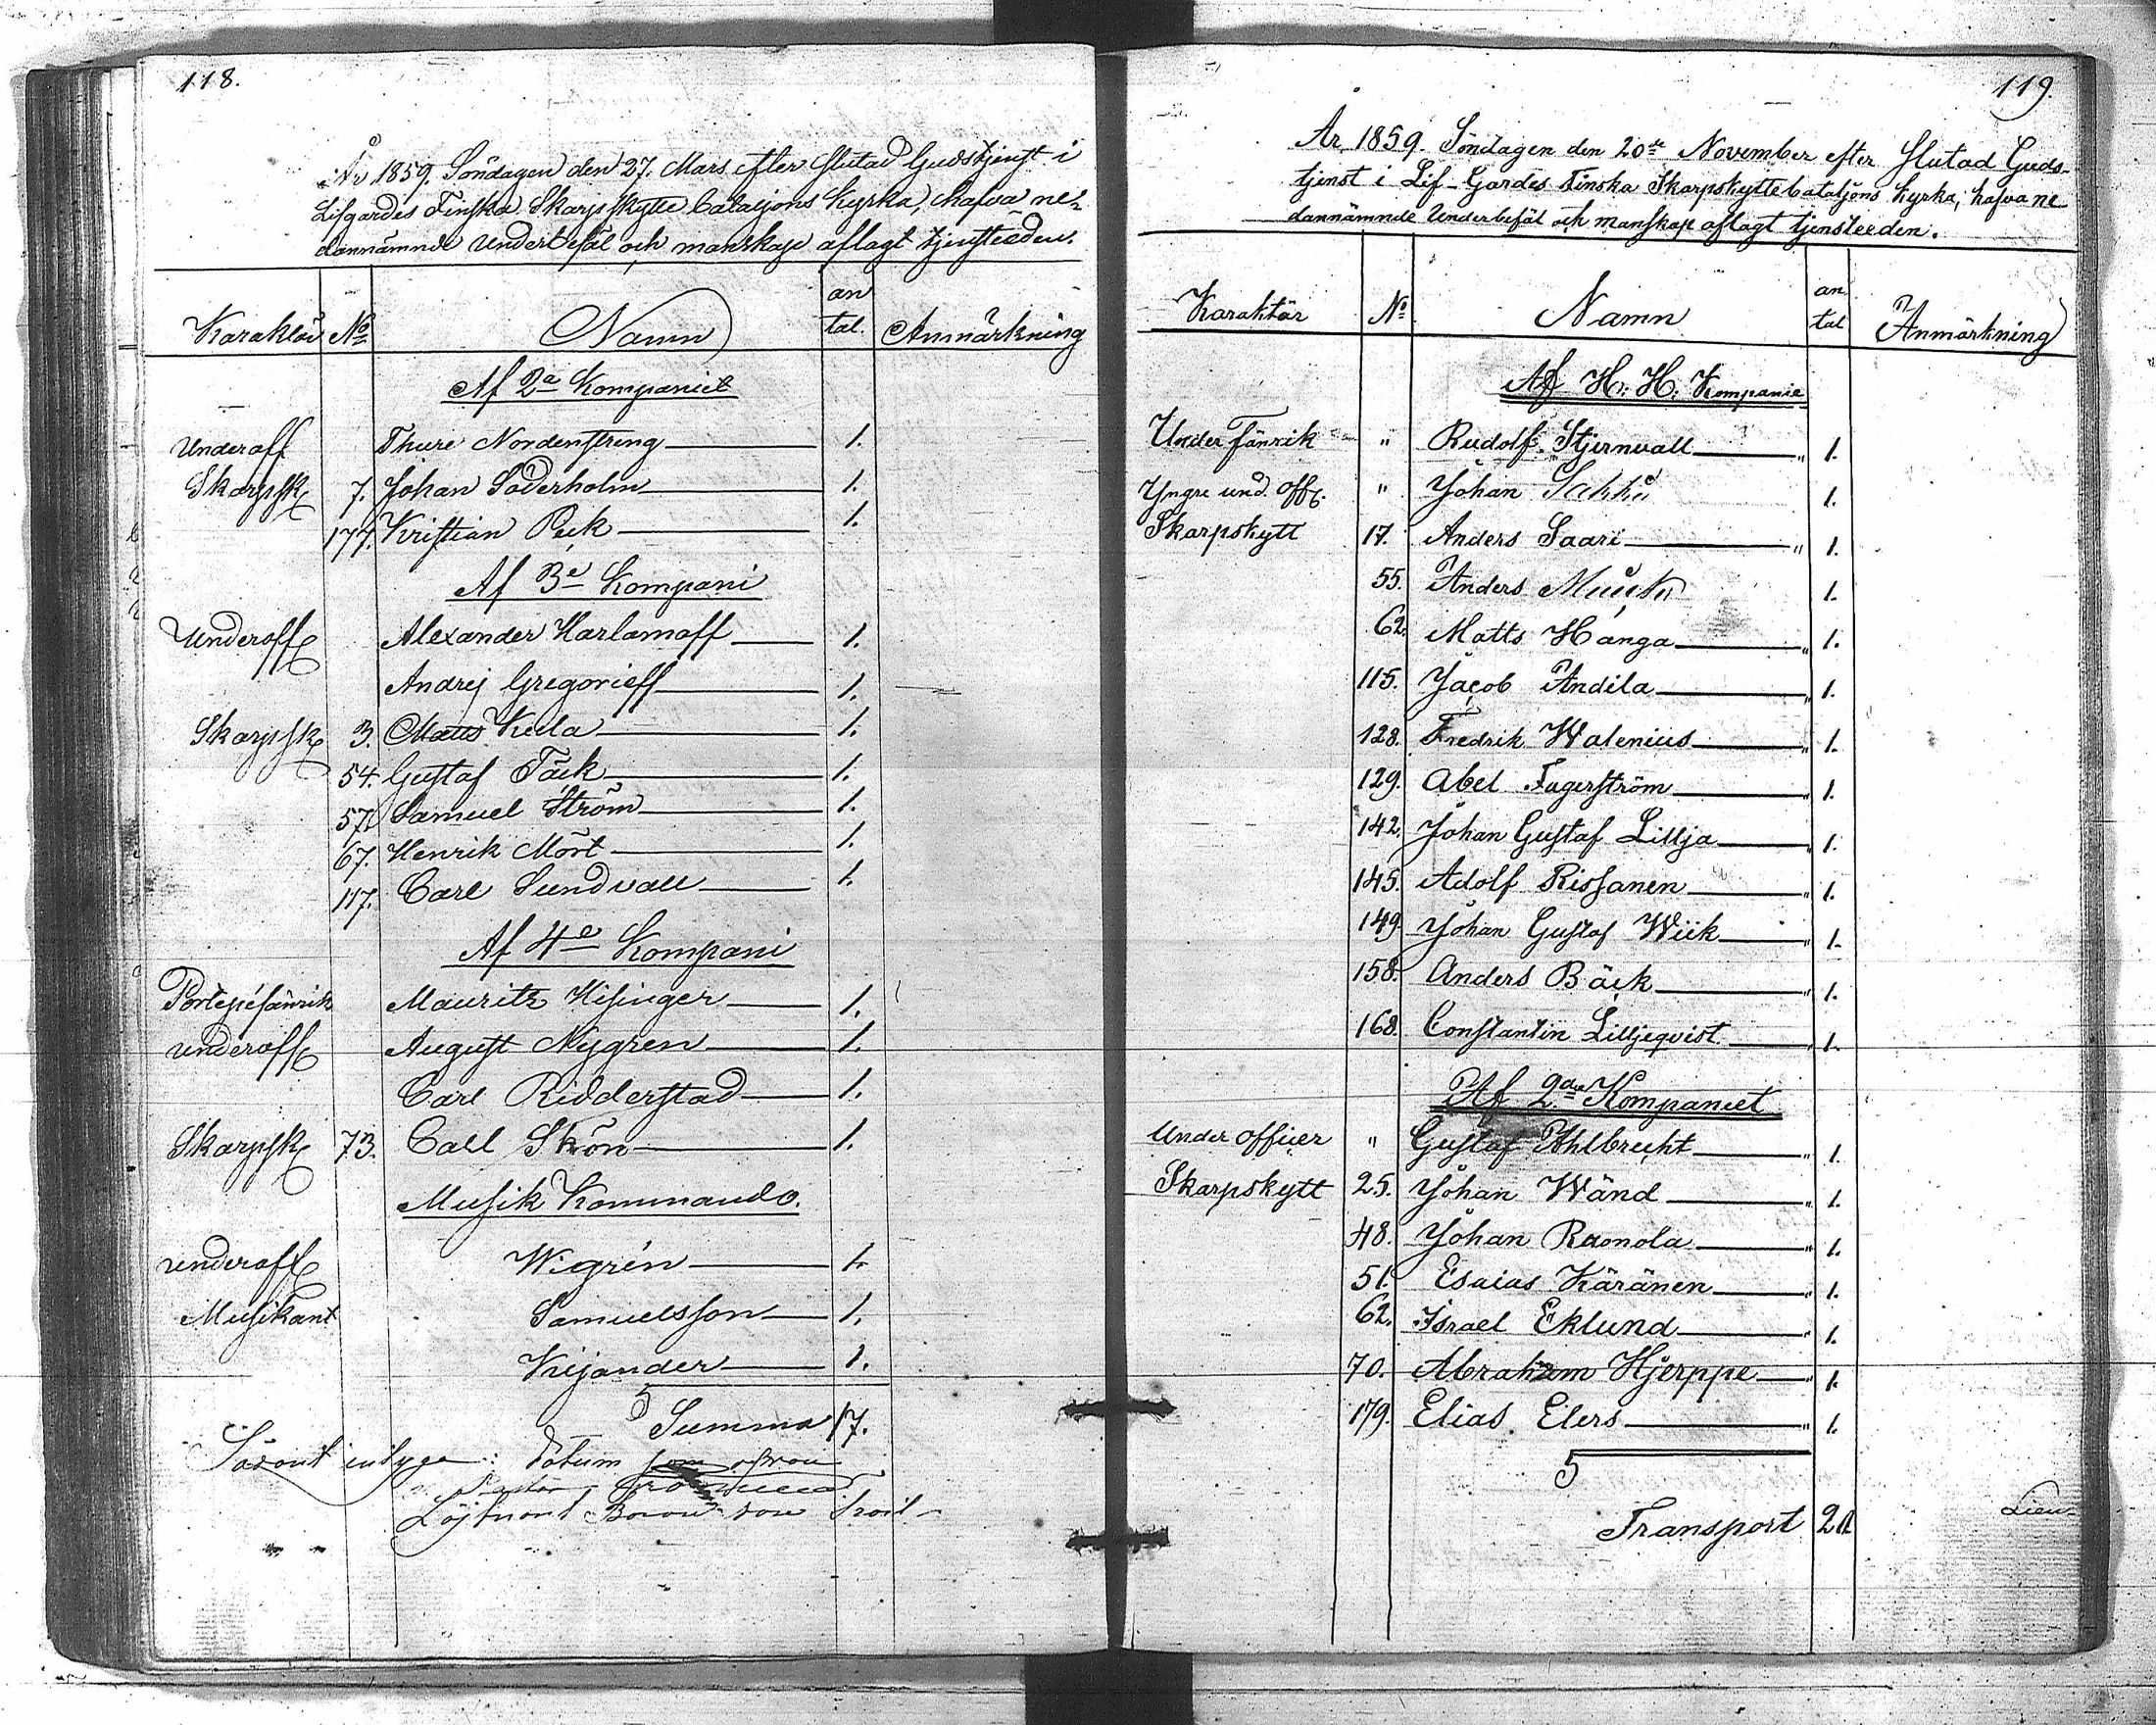 118.
År 1859. Söndagen den 27. Mars efter slutad Gudstjenst i
Lifgardes Finska Skarpskytte bataljons kyrka, hafva ne-
dannämnde underbefäl och manskap aflagt tjensteeden.
Karaktär No Namn an tal. Anmärkning
Af 2a Kompaniet
Underoff Thure Nordenstreng 1.
Skarpsk 7. Johan Söderholm 1.
177. Kristian Peck 1.
Af 3e Kompani
Underoff Alexander Harlamoff 1.
Andrej Gregorieff 1.
Skarpsk 3. Matts Kula 1.
54. Gustaf Täck 1.
57. Samuel Ström 1.
67. Henrik Mört 1.
117. Carl Sundvall 1.
Af 4e Kompani
Portepéfänrik Mauritz Hisinger 1.
underoff August Nygren 1.
Carl Ridderstad 1.
Skarpsk 73. Carl Skön 1.
Musik Kommando.
underoff Wigrén 1.
Musikant Samuelsson 1.
Kijander 1.
Summa 17.
Sådant intyga: Datum som ofvan
Löjtnant
119.
År 1859. Söndagen den 20de November efter slutad Guds-
tjenst i Lif-Gardes Finska Skarpskyttebataljons kyrka, hafva ne
dannämnde Underbefäl och manskap aflagt tjensteeden.
Karaktär No Namn an tal Anmärkning
Af H. H. Kompanie
Under fänrik " Rudolf Stjernvall " 1.
Yngre und. off. " Johan 1.
Skarpskytt 17. Anders Saari " 1.
55. Anders 1.
62. Matts Hanga " 1.
115. Jacob Andila " 1.
128. Fredrik Walenius " 1.
129. Abel Fagerström " 1.
142. Johan Gustaf Lillja " 1.
145. Adolf Rissanen " 1.
149. Johan Gustaf Wiik " 1.
158. Anders Bäck " 1.
168. Constantin Lilljeqvist " 1.
Af 2dra Kompaniet
Under officer " Gustaf Ahlbrecht " 1.
Skarpskytt 25. Johan Wänd " 1.
48. Johan Raonola " 1.
51. Esaias Käränen " 1.
62. Israel Eklund " 1.
70. Abraham Hjerppe " 1.
179. Elias Elers " 1.
Transport 20
Lieu-